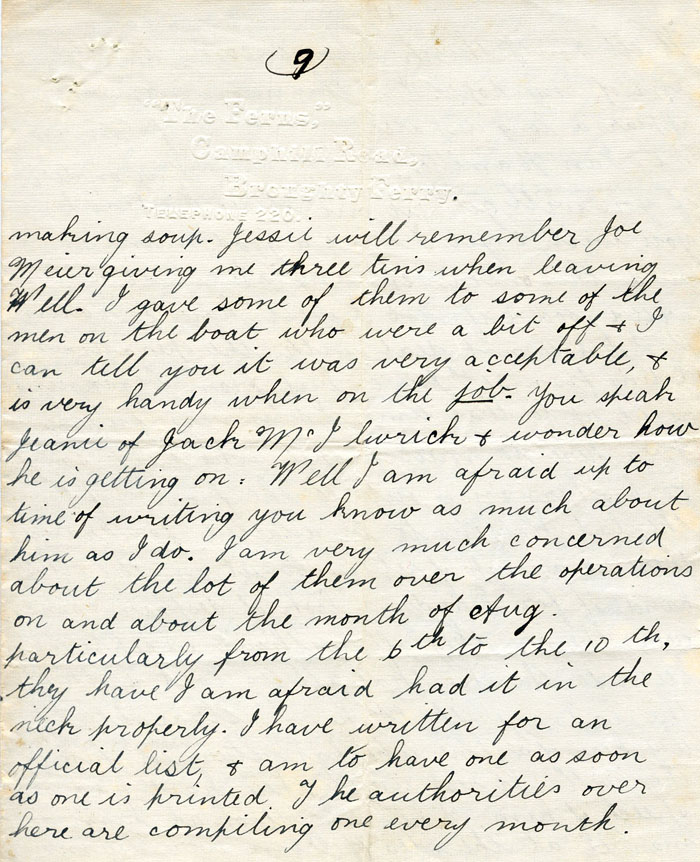 (9)
"The Ferns,"
Camphill Road,
Broughty Ferry.
TELEPHONE 220.
making soup. Jessie will remember Joe
Meier giving me three tins when leaving
Well. I gave some of them to some of the
men on the boat who were a bit off & I
can tell you it was very acceptable, &
is very handy when on the job. You speak
Jeanie of Jack McIlwrick & wonder how
he is getting on: Well I am afraid up to
time of writing you know as much about
him as I do. I am very much concerned
about the lot of them over the operations
on and about the month of Aug.
particularly from the 6th to the 10th,
they have I am afraid had it in the
neck properly. I have written for an
official list, & am to have one as soon
as one is printed. The authorities over
here are compiling one every month.